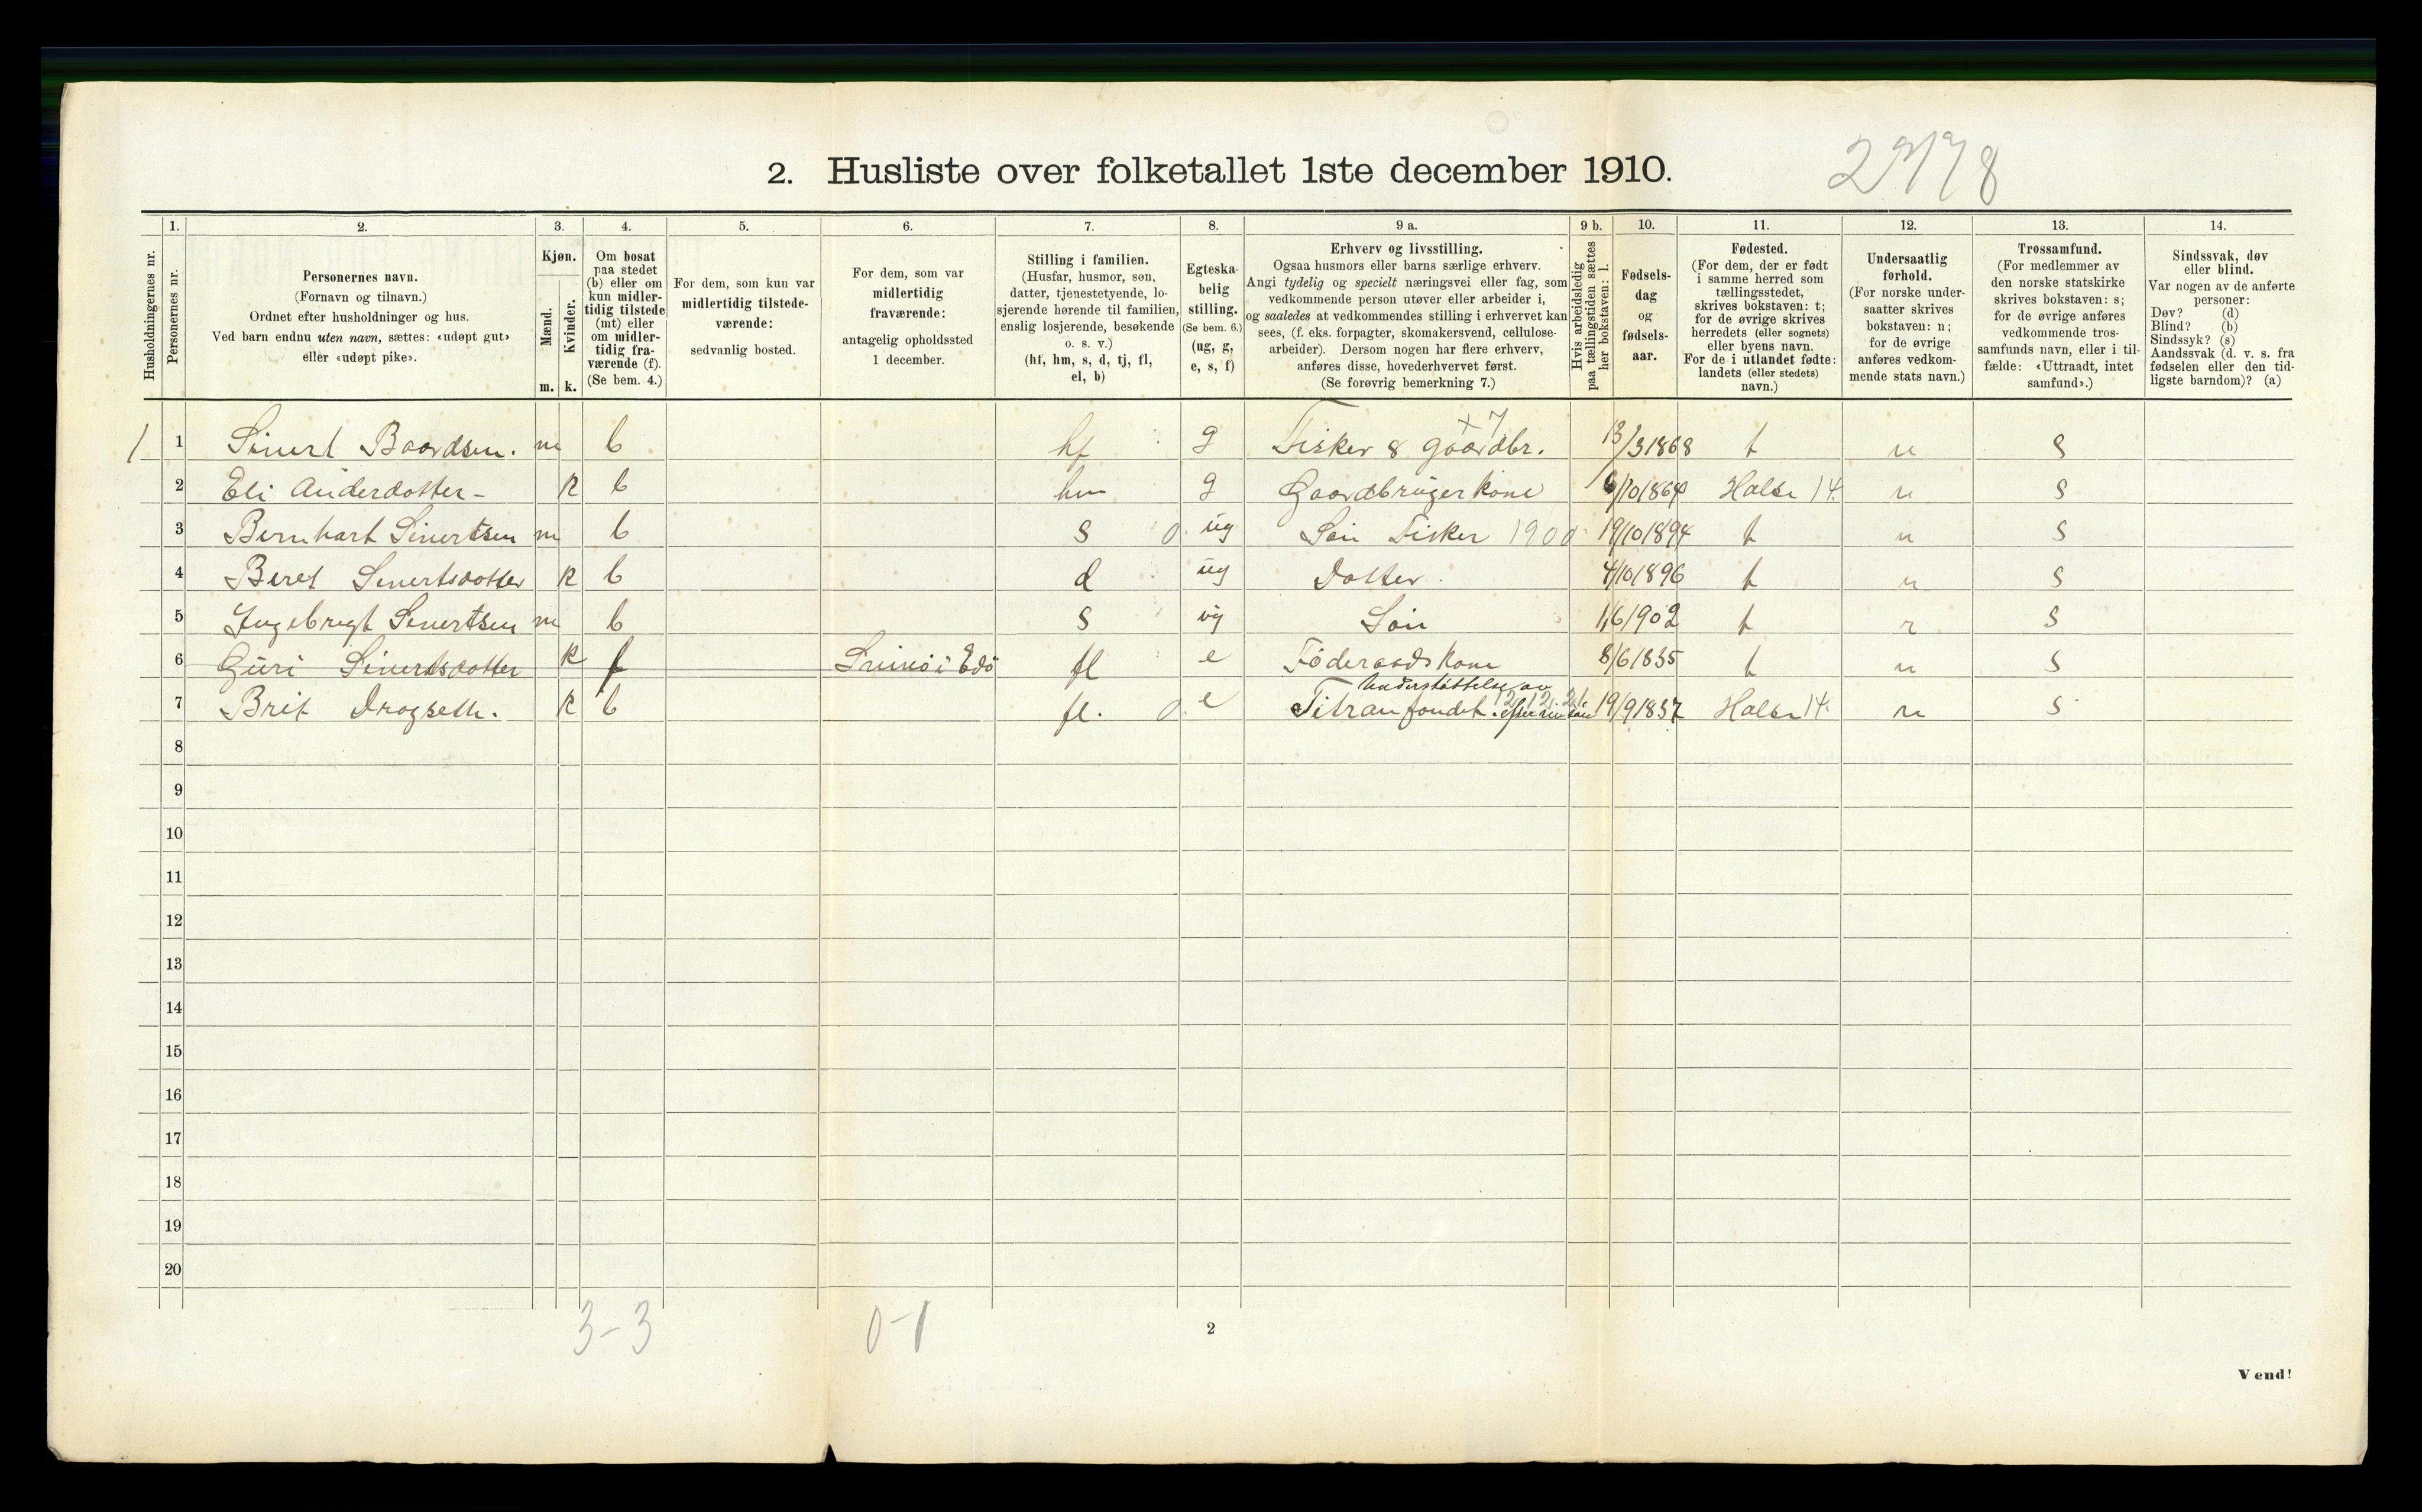 2. Husliste over folketallet 1ste december 1910.
1. 2. 3. 4. 5. 6. 7. 8. 9 a. 9 b. 10. 11. 12. 13. 14.
Husholdningernes nr.
Personernes nr.
Personernes navn.
(Fornavn og tilnavn.)
Ordnet efter husholdninger og hus.
Ved barn endnu uten navn, sættes: «udøpt gut»
eller «udøpt pike».
Kjøn.
Mænd.
Kvinder.
m. k.
Om bosat
paa stedet
(b) eller om
kun midler-
tidig tilstede
(mt) eller
om midler-
tidig fra-
værende (f).
(Se bem. 4.)
For dem, som kun var
midlertidig tilstede-
værende:
sedvanlig bosted.
For dem, som var
midlertidig
fraværende:
antagelig opholdssted
1 december.
Stilling i familien.
(Husfar, husmor, søn,
datter, tjenestetyende, lo-
sjerende hørende til familien,
enslig losjerende, besøkende
o. s. v.)
(hf, hm, s, d, tj, fl,
el, b)
Egteska-
belig
stilling.
(Se bem. 6.)
(ug, g,
e, s, f)
Erhverv og livsstilling.
Ogsaa husmors eller barns særlige erhverv.
Angi tydelig og specielt næringsvei eller fag, som
vedkommende person utøver eller arbeider i,
og saaledes at vedkommendes stilling i erhvervet kan
sees, (f. eks. forpagter, skomakersvend, cellulose-
arbeider). Dersom nogen har flere erhverv,
anføres disse, hovederhvervet først.
(Se forøvrig bemerkning 7.)
Hvis arbeidsledig
paa tællingstiden sættes
her bokstaven: l.
Fødsels-
dag
og
fødsels-
aar.
Fødested.
(For dem, der er født
i samme herred som
tællingsstedet,
skrives bokstaven: t;
for de øvrige skrives
herredets (eller sognets)
eller byens navn.
For de i utlandet fødte:
landets (eller stedets)
navn.)
Undersaatlig
forhold.
(For norske under-
saatter skrives
bokstaven: n;
for de øvrige
anføres vedkom-
mende stats navn.)
Trossamfund.
(For medlemmer av
den norske statskirke
skrives bokstaven: s;
for de øvrige anføres
vedkommende tros-
samfunds navn, eller i til-
fælde: «Uttraadt, intet
samfund».)
Sindssvak, døv
eller blind.
Var nogen av de anførte
personer:
Døv? (d)
Blind? (b)
Sindssyk? (s)
Aandssvak (d. v. s. fra
fødselen eller den tid-
ligste barndom)? (a)
+ 7
1 1 Sivert Baardsen. m b hf g Fisker & gaardbr. 13/3 1868 t n s
2 Eli Andersdotter k b hm g Gaardbruger kone 1864 Halse 14 n s
3 Bernhart Sivertsen m b s 0 ug Søn Fisker 1900 19/10 1894 t n s
4 Beret Sivertsdotter k b d ug Dotter 4/10 1896 t n s
5 Ingebrigt Sivertsen m b s ug Søn 1/6 1902 t n s
6 Guri Sivertsdotter k f Smiø i Edø fl e Føderaadskone 8/6 1835 t n s
Understøttelse av
7 Brit Drogseth. k b fl. 0 e Titran fondet. efter sin 19/9 1837 Halse 14. n s
8
9
10
11
12
13
14
15
16
17
18
19
20
3-3 0-1
2
Vend!